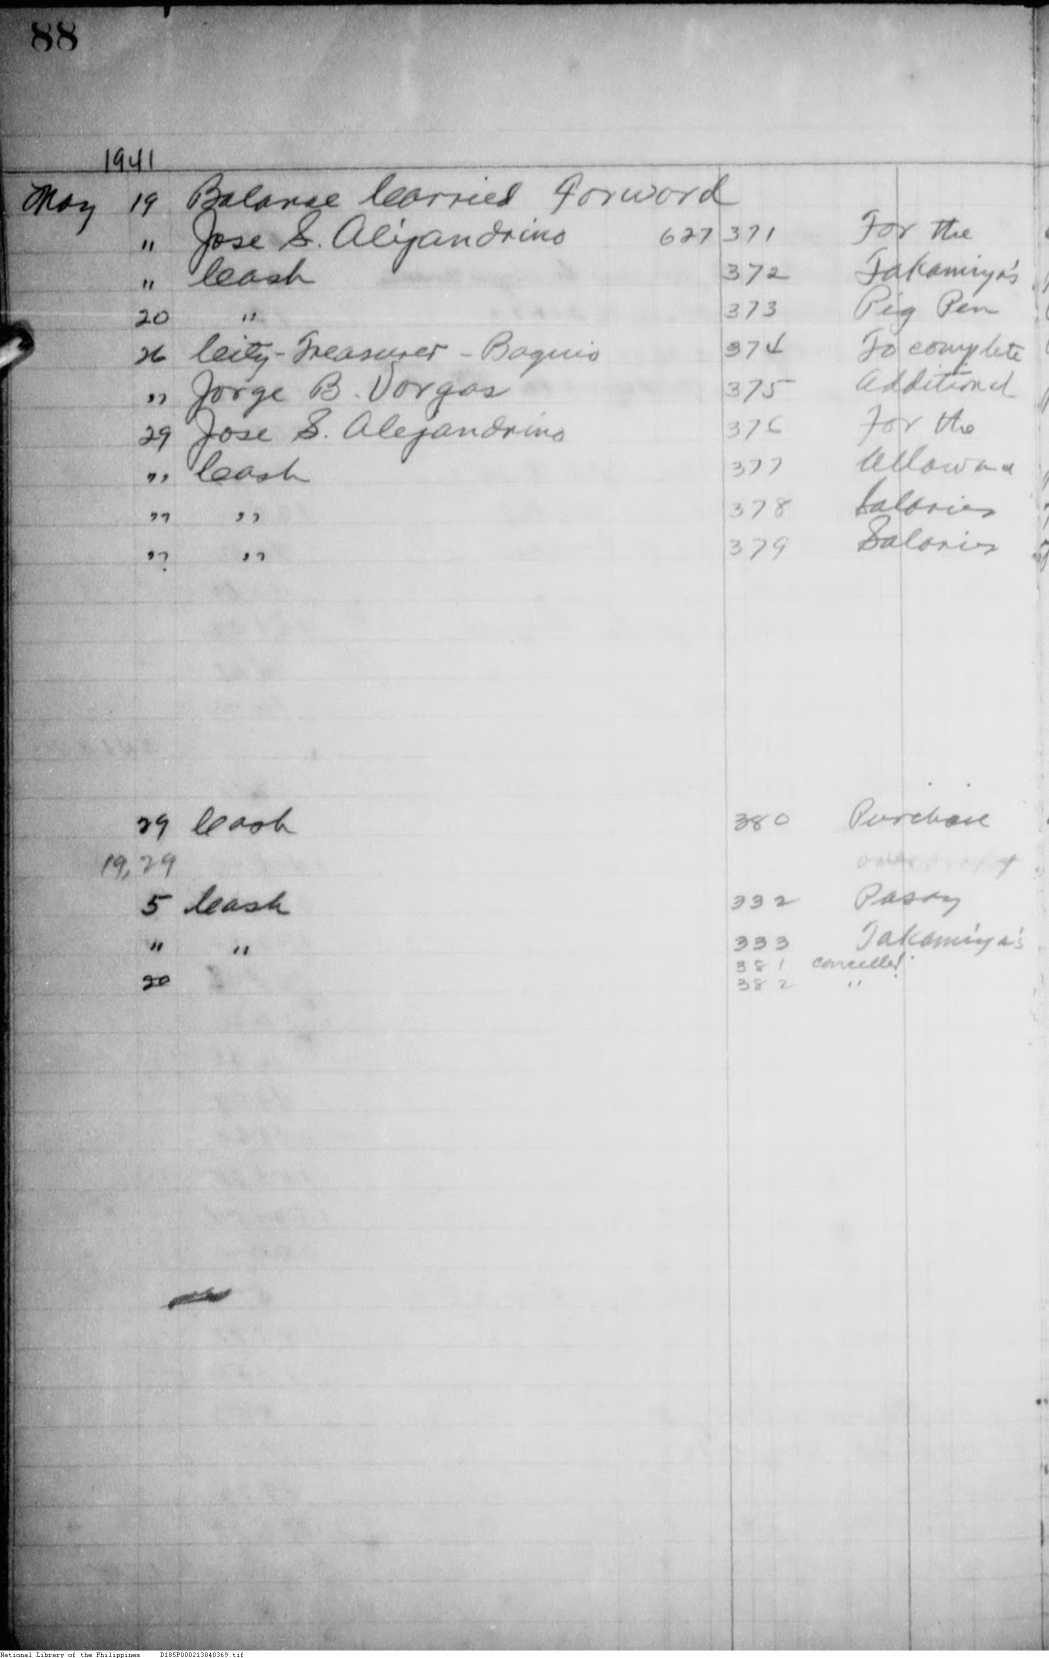 88
1941
May 19 Balance Carried Forword
" Jose S. Alejandrino 627 371 For the
" Cash 372 Takamiya's
20 " 373 Pig Pen
26 City-Treasurer - Baguio 374 To complete
" Jorge B. Vargas 375 Additional
29 Jose S. Alejandrino 376 For the
" Cash 377 Allowance
" " 378 Salaries
" " 379 Salaries
29 Cash 380 Purchase
19, 29
5 Cash 332 Pasay
" " 333 Takamiya's
381 cancelled
20 382 "
National Library of the Philippines D185P000213040369.tif